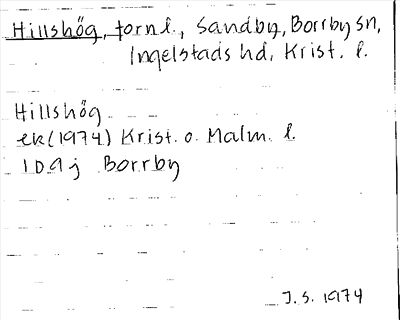 Hillshög, fornl., Sandby, Borrby sn,
Ingelstads hd, Krist. l.
Hillshög
ek (1974) Krist. o. Malm. l.
1D9j Borrby
J.S. 1974